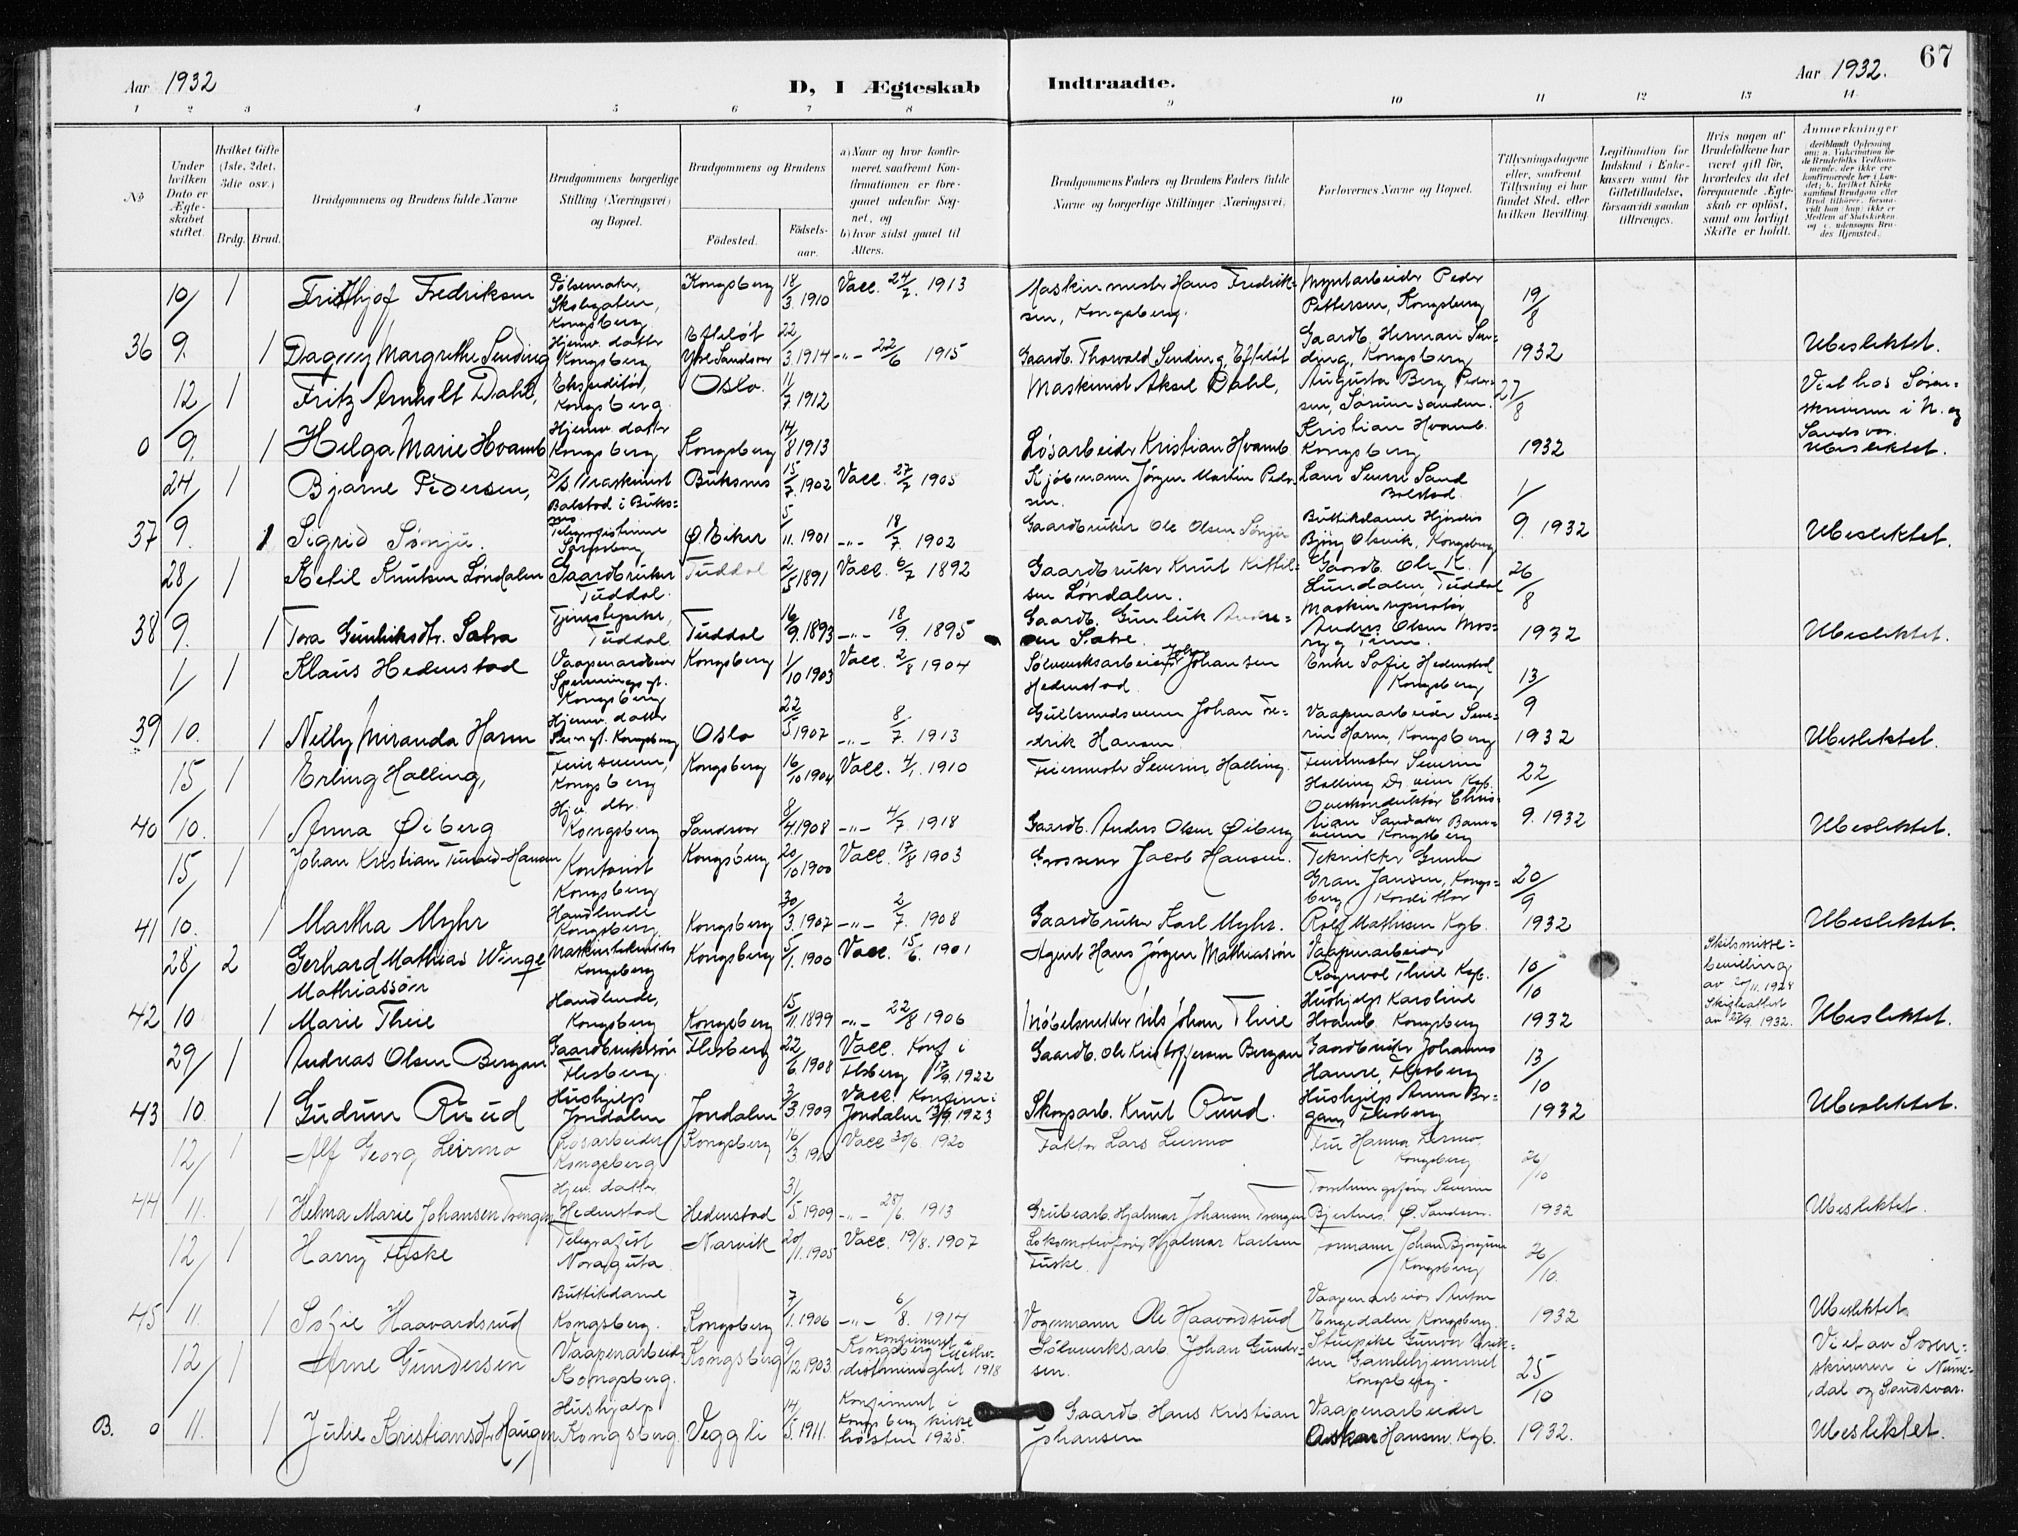 Aar 1932
D, I Ægteskab Indtraadte.
Aar 1932.
67
1 2 3 4 5 6 7 8 9 10 11 12 13 14
No
Under hvilken Dato er Ægteskabet stiftet.
Hvilket Gifte (1ste, 2det, 3die osv.)
Brdg. Brud.
Brudgommens og Brudens fulde Navne
Brudgommens borgerlige Stilling (Næringsvei) og Bopæl.
Brudgommens og Brudens
Fødested.
Fødselsaar.
a) Naar og hvor konfirmeret, saafremt Konfirmationen er foregaaet udenfor Sognet, og
b) hvor sidst gaaet til Alters.
Brudgommens Faders og Brudens Faders fulde Navne og borgerlige Stillinger (Næringsvei)
Forlovernes Navne og Bopæl.
Tillysningsdagene eller, saafremt Tillysning ei har fundet Sted, efter hvilken Bevilling.
Legitimation for Indskud i Enkekassen samt for Giftetilladelse, forsaavidt saadan tiltrænges.
Hvis nogen af Brudefolkene har været gift før, hvorledes da det foregaaende Ægteskab er opløst, samt om lovligt Skifte er holdt.
Anmærkninger
10/ 1 Frithjof Fredriksen Pølsemaker, Skolegaten, Kongsberg Kongsberg 18/3 1910 Vacc. 24/7 1913 Maskinmester Hans Fredriksen, Kongsberg. Myntarbeider Peder Pettersen, Kongsberg 19/8
36 9. 1 Dagny Margrethe Sending Hjemv. datter Kongsberg Efteløt Ytre Sandsvær 22/3 1914 -"- 22/6 1915 Gaardb. Thorvald Sending, Efteløt Gaardb. Herman Sending, Kongsberg 1932 Ubeslektet.
12/ 1 Fritz Arnholt Dahl, Ekspeditør, Kongsberg. Oslo. 11/7 1912 Maskinist Aksel Dahl, Augusta Berg Pedersen, 27/8 Viet hos Sorenskriveren i N. og Sandsvær.
0 9. 1 Helga Marie Hvamb Hjemv. datter Kongsberg Kongsberg 14/8 1913 Løsarbeider Kristian Hvamb Kristian Hvamb. Kongsberg 1932 Ubeslektet.
24/ 1 Bjarne Pedersen, Maskinist Balstad i Buksnes Buksnes 15/7 1902 Vacc. 27/7 1905 Kjøbmann Jørgen Martin Pedersen. Lars Severin Sand Balstad. 1/
37 9. 1 Sigrid Sønju. Telegrafistinne Ø. Eiker 5/11. 1901 -"- 18/7. 1902 Gaardbruker Ole Olsen Sønju Buttikdame Hjørdis Bjørg Olsvik, Kongsberg 9. 1932 Ubeslektet.
28/ 1 Ketil Knutsen Løndalen Gaardbruker Tuddal. Tuddal 2/5 1891 Vacc. 6/7 1892 Gaardbruker Knut Kittilsen Løndalen. Gaardb. Ole K. Lundalen, Tuddal 26/8
38 9. 1 Tora Gunleiksdtr. Satra Tjenestepike, Tuddal Tuddal 16/9. 1893 -"- 18/9. 1895 Gaardb. Gunleik Andersen Maskinreparatør Anders Olsen 1932 Ubeslektet.
1/ 1 Klaus Hedenstad Vaapenarbeider Spenningsgt. Kongsberg Kongsberg 1/10 1903 Vacc. 2/8 1904 Sølvverksarbeider Johan Johansen Hedenstad. Enke Sofie Hedenstad Kongsberg 13/9
39 10. 1 Nelly Miranda Harm Hjemv. datter Kongsberg Oslo 22/5 1907 -"- 8/7. 1913 Gullsmedsvenn Johan Fredrik Hansen. Vaapenarbeider Severin Harm, Kongsberg 1932 Ubeslektet.
15/ 1 Erling Halling, Feiersvenn, Kongsberg Kongsberg 16/10 1904 Vacc. 4/1. 1910 Feiermester Severin Halling. Feiermester Severin Halling 22/
40 10. 1 Anna Øiberg Hjv. dtr. Kongsberg Sandsvær 8/4. 1908 -"- 4/7 1918 Gaardb. Anders Olsen Øiberg Overkonduktør Christian Sandaker Kongsberg 9. 1932 Ubeslektet.
15/ 1 Johan Kristian Hansen Kontorist Kongsberg Kongsberg 20/10 1900 Vacc. 17/8 1903 Grosserer Jacob Hansen. Tekniker Gunnar Gran Jansen, Kongsberg 20/9
41 10. 1 Martha Myhr Handlende Kongsberg. Kongsberg 30/3. 1907 -"- 2/7. 1908 Gaardbruker Karl Myhr. Konditor Rolf Mathisen Kgb. 1932 Ubeslektet.
28/ 2 Gerhard Mathias Winge Mathiassøn Maskintekniker Kongsberg Kongsberg 5/1. 1900 Vacc. 15/6. 1901 Agent Hans Jørgen Mathiassøn Vaapenarbeider Ragnvol Theie Kgb. 10/10 Skilsmissebevilling av 11. 1928 Skifteattest av 27/9. 1932.
42 10 1 Marie Theie Handlende, Kongsberg Kongsberg 15/11. 1899 -"- 22/8 1906 Møbelsnekker Nils Johan Theie Hushjelp Karoline Hvamb. Kongsberg 1932 Ubeslektet.
29/ 1 Andreas Olsen Bergan Gaardbrukssøn Flesberg. Flesberg 22/6 1908 Vacc. Konf i Flesberg 17/9. 1922 Gaardb. Ole Kristoffersen Bergan Gaardbruker Johannes Hamre, Flesberg 13/10
43 10. 1 Gudrun Ruud Hushjelp Jondalen Jondalen 3/3. 1909 Vacc. Konfirm i Jondalen 1923 Skogsarb. Knut Ruud. Hushjelp Anna Bergan, Flesberg 1932 Ubeslektet.
12/ 1 Alf Georg Leirmo Løsarbeider Kongsberg Kongsberg 16/3 1910 Vacc 30/6. 1920 Faktor Lars Leirmo Fru Hanna Leirmo, Kongsberg 26/10
44 11. 1 Helma Marie Johansen Trengen Hjev. datter Hedenstad Hedenstad 31/5 1909 -"- 28/6. 1913 Grubearb. Hjalmar Johansen Trengen Severin Bjerknes. Ø. Sandsv. 1932 Ubeslektet.
12/ 1 Harry Fuske Telegrafist Narvik 20/1. 1905 Vacc. 19/8. 1907 Lokomotivfører Hjalmar Karlsen Fuske. Formann Johan Bjørgum Kongsberg 26/10.
45 11. 1 Sofie Haavardsrud Buttikdame Kongsberg. Kongsberg 7/1. 1906 -"- 6/8. 1914 Vognmann Ole Haavardsrud Vaapenarbeider Anton Engedalen Kongsberg. 1932 Ubeslektet.
12/ 1 Arne Gundersen Vaapenarbeider Kongsberg. Kongsberg 9/12 1903. Konfirmert i Kongsberg Methodistmenighet 1918 Sølvverksarb. Johan Gundersen. Stuepike Gunvor Eriksen Gamlehjemmet Kongsberg. 25/10 Viet av Sorenskriveren i Numedal og Sandsvær.
B. 0 11. 1 Julie Kristiansdtr Haugen Hushjelp Kongsberg. Veggli 14/5. 1911. Konfirmert i Kongsberg kirke høsten 1925. Gaardb. Hans Kristian Johansen Vaapenarbeider Oskar Hansen Kgb. 1932. Ubeslektet.